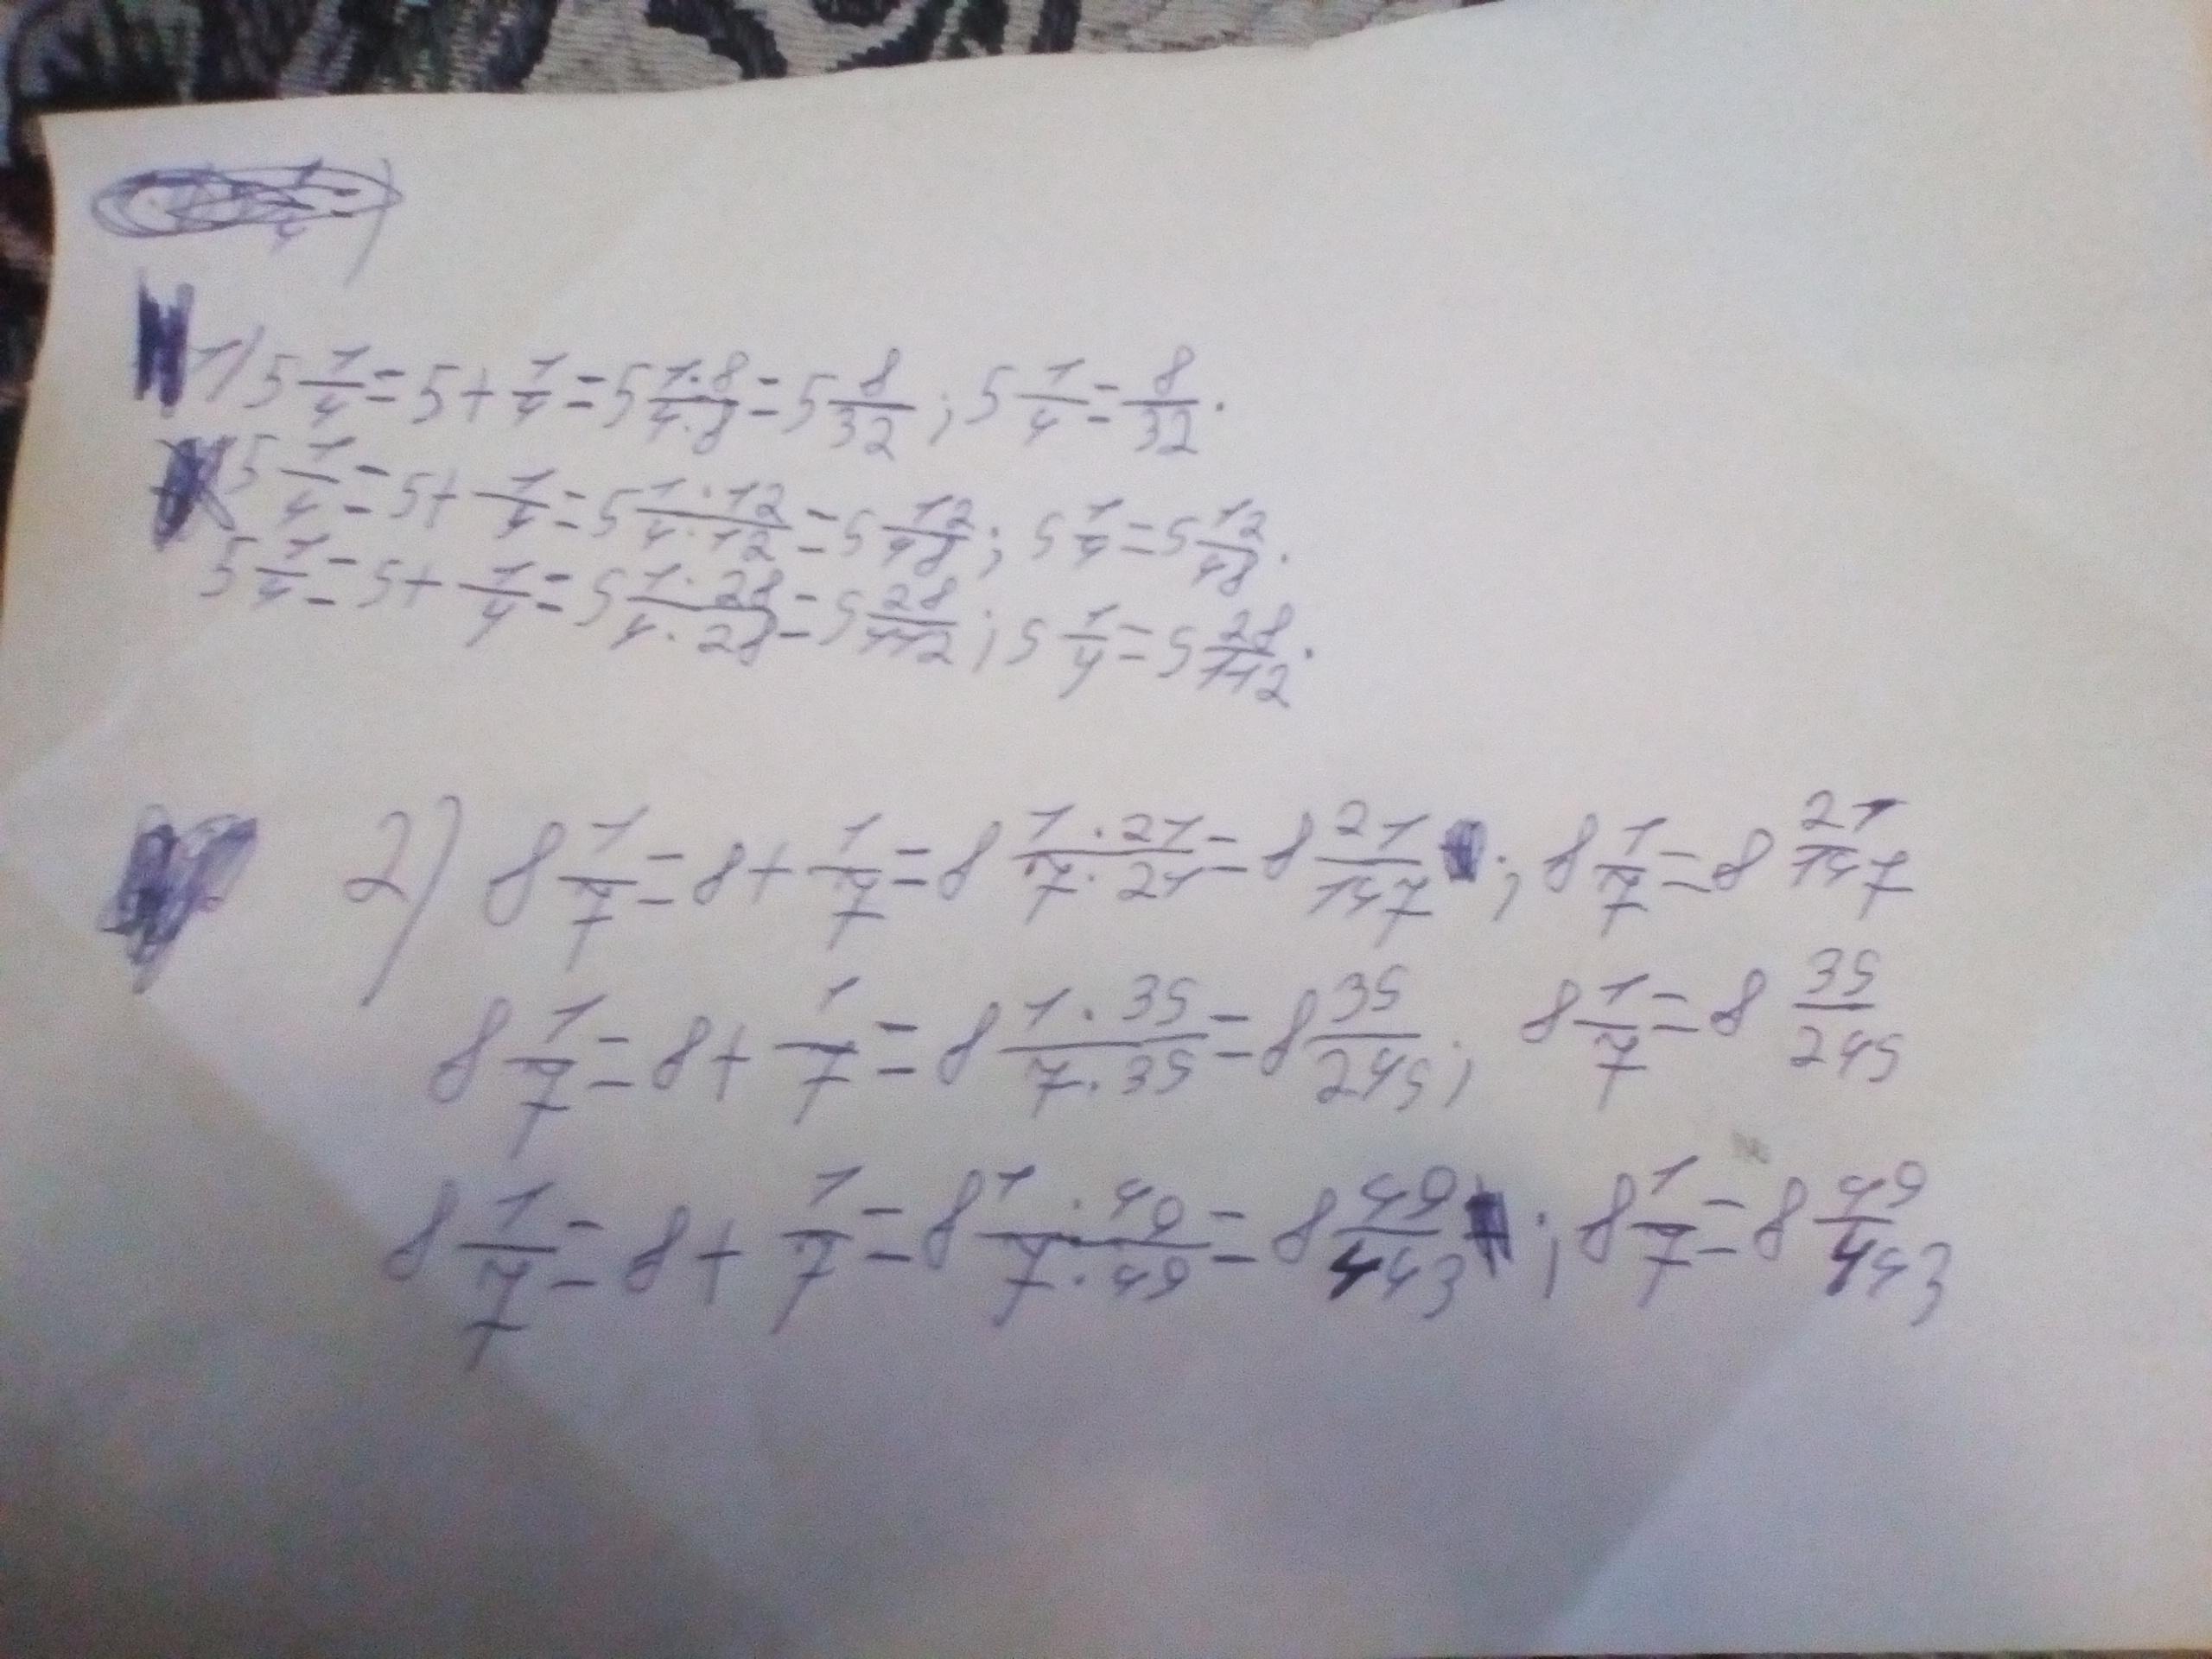 1) 5 1/4 = 5 + 1/4 = 5 1·8/4·8 = 5 8/32 ; 5 1/4 = 8/32 .
5 1/4 = 5 + 1/4 = 5 1·12/4·12 = 5 12/48 ; 5 1/4 = 5 12/48 .
5 1/4 = 5 + 1/4 = 5 1·28/4·28 = 5 28/112 ; 5 1/4 = 5 28/112 .
2) 8 1/7 = 8 + 1/7 = 8 1·21/7·21 = 8 21/147 ; 8 1/7 = 8 21/147
8 1/7 = 8 + 1/7 = 8 1·35/7·35 = 8 35/245 ; 8 1/7 = 8 35/245
8 1/7 = 8 + 1/7 = 8 1·49/7·49 = 8 49/443 ; 8 1/7 = 8 49/443